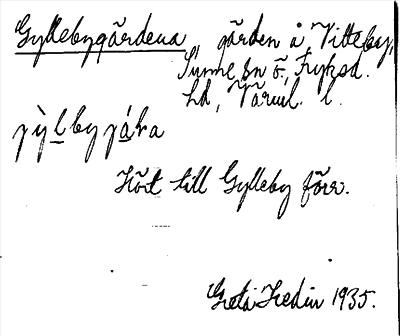 Gyllebygårdena gården å Vitteby,
Sunne sn ö., Fryksd.
hd, Värml. l.
Hört till Gylleby förr.
Greta Hedin 1935.